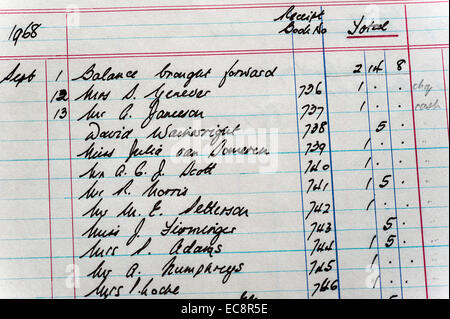 1968 Receipt Book No Total
Sept 1 Balance brought forward 2 14 8
12 Mrs D. Yenever 736 1 . . chq
13 Mr A. Janeson 737 1 . . cash
David Wainwright 738 5 .
Miss Julia van Someren 739 1 . .
Mr A. C. J. Scott 740 1 . .
Mr R. Norris 741 1 5 .
Mr M. E. Setterson 742 1 . .
Miss J. Firminger 743 5 .
Mrs P. Adams 744 1 5 .
Mr A. Humphreys 745 1 . .
Mrs P. Roche 746 1 . .
5 .
alamy
Image ID: EC8R5E
www.alamy.com